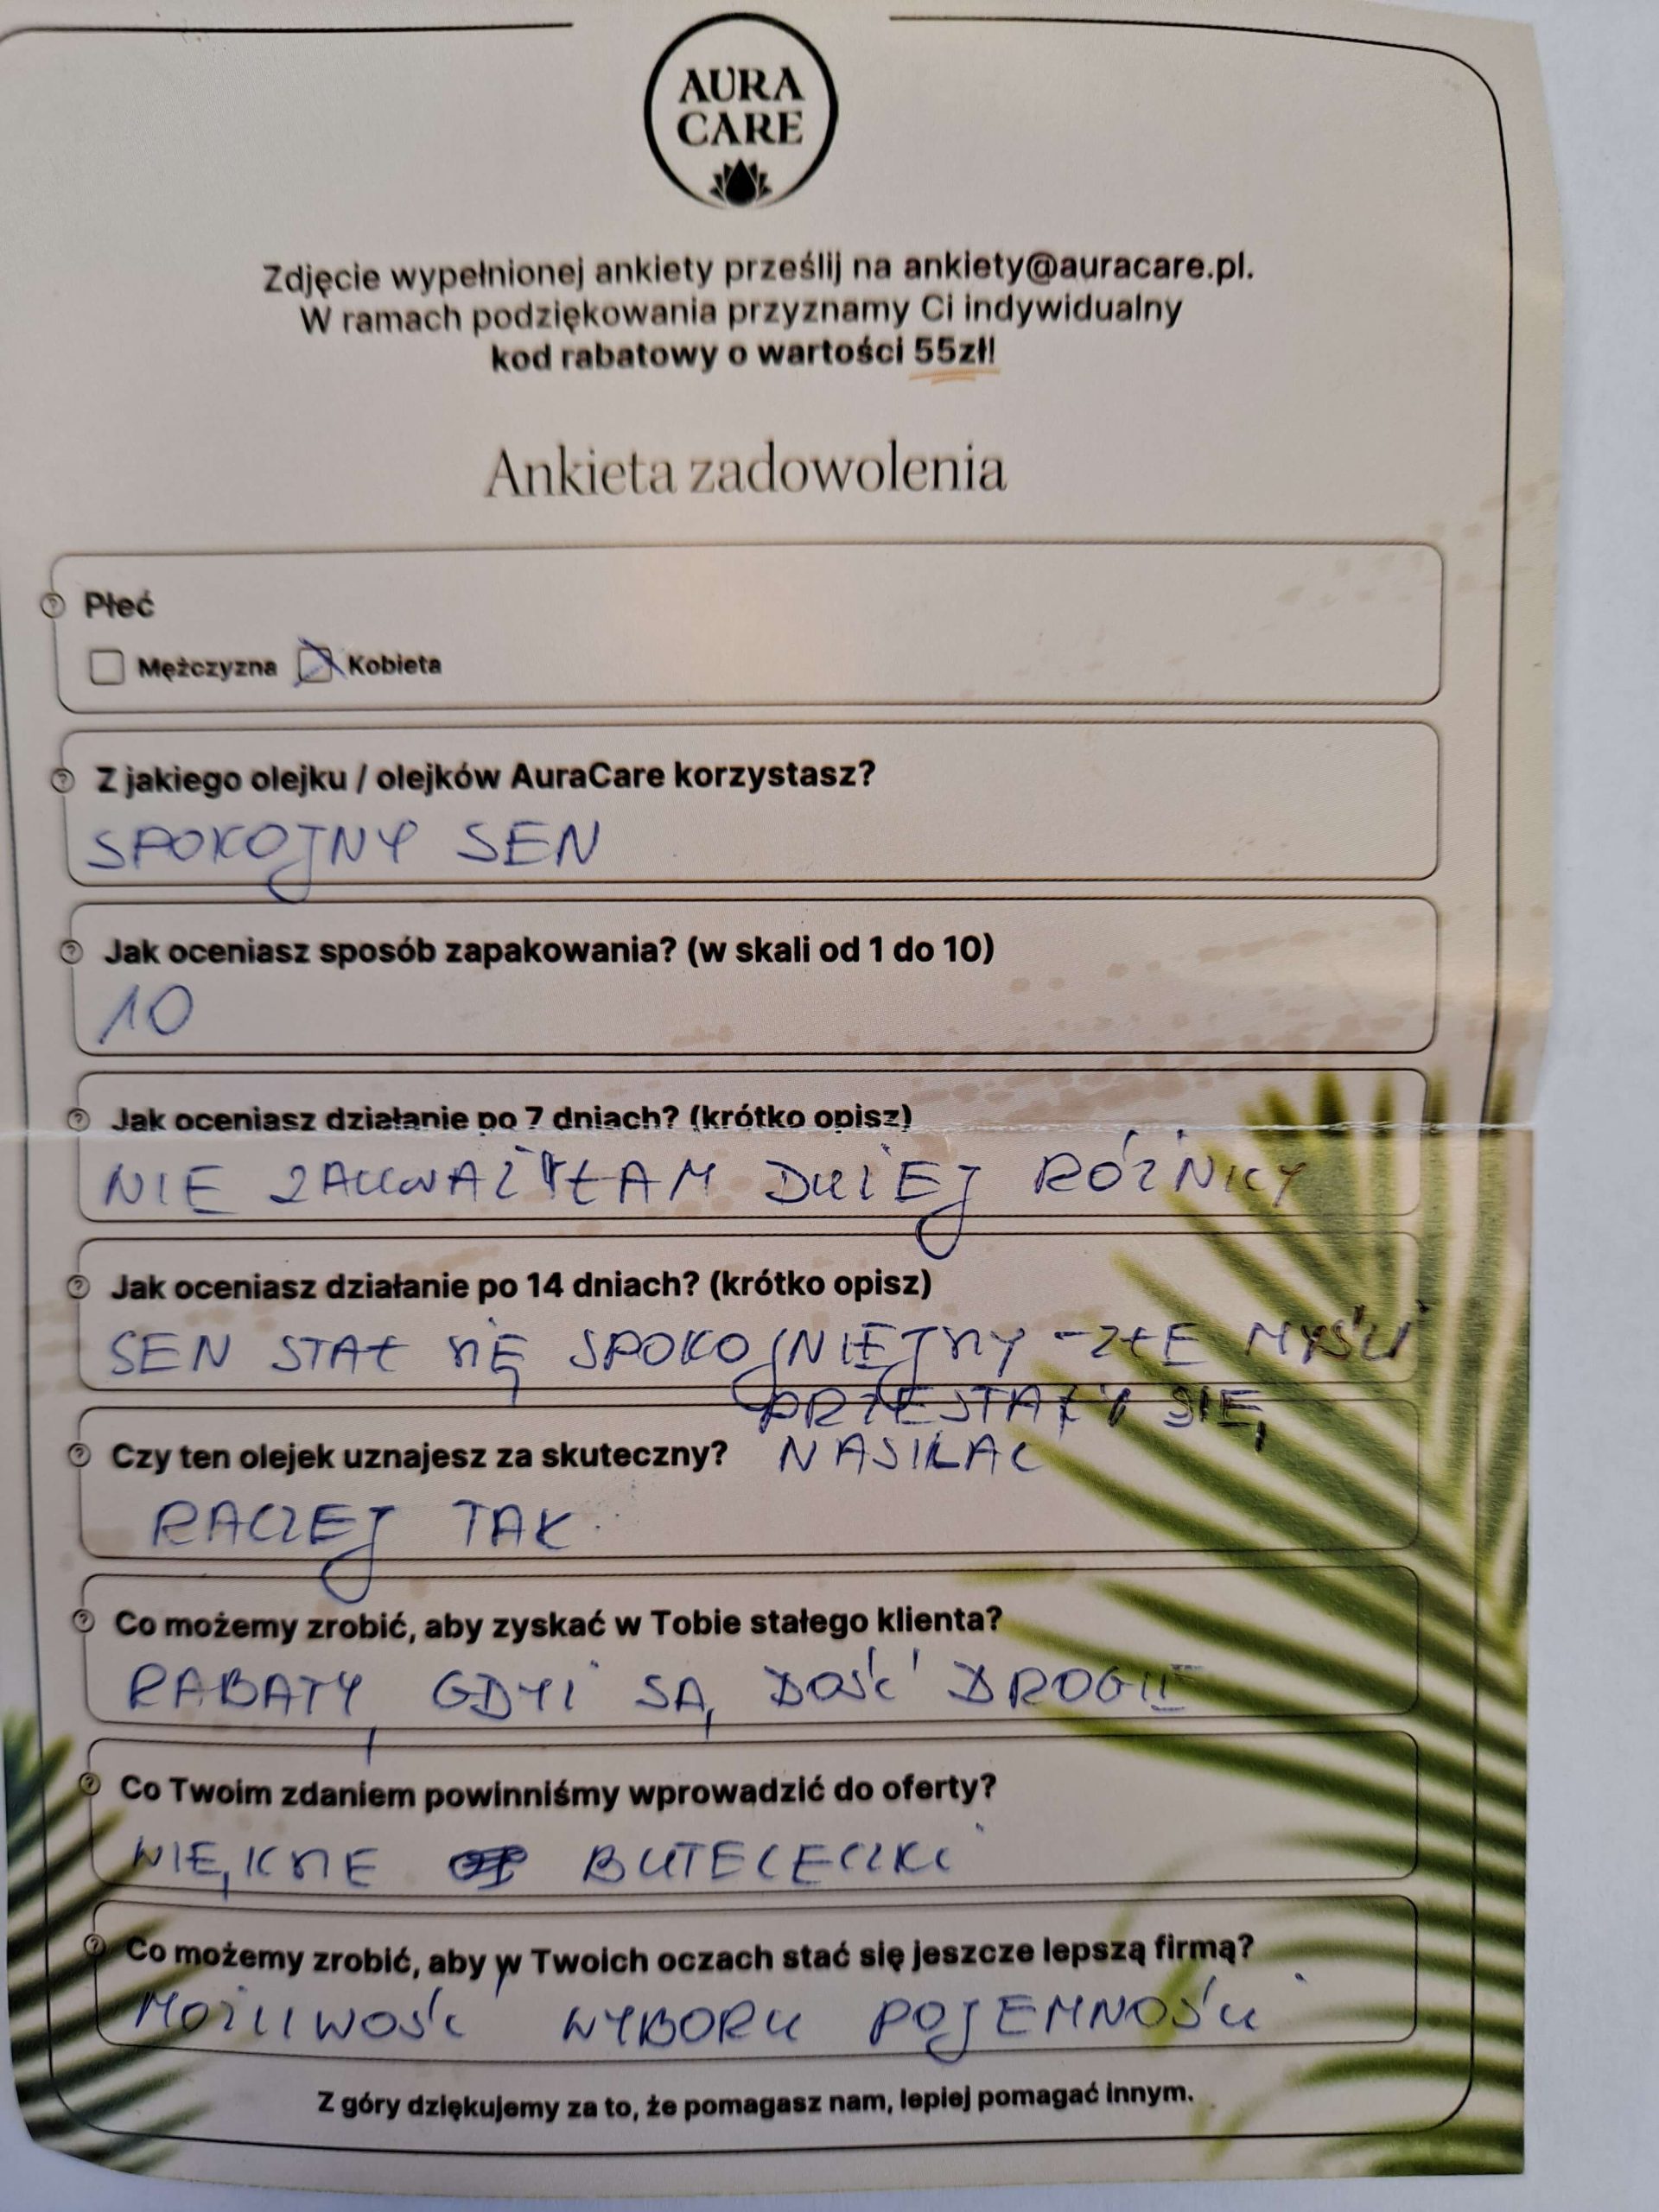 AURA
CARE
Zdjęcie wypełnionej ankiety prześlij na ankiety@auracare.pl.
W ramach podziękowania przyznamy Ci indywidualny
kod rabatowy o wartości 55zł!
Ankieta zadowolenia
Płeć
Mężczyzna Kobieta
Z jakiego olejku / olejków AuraCare korzystasz?
SPOKOJNY SEN
Jak oceniasz sposób zapakowania? (w skali od 1 do 10)
10
Jak oceniasz działanie po 7 dniach? (krótko opisz)
NIE ZAUWAŻYŁAM DUŻEJ RÓŻNICY
Jak oceniasz działanie po 14 dniach? (krótko opisz)
SEN STAŁ SIĘ SPOKOJNIEJSZY - ZŁE MYŚLI
PRZESTAŁY SIĘ
Czy ten olejek uznajesz za skuteczny? NASILAC
RACZEJ TAK
Co możemy zrobić, aby zyskać w Tobie stałego klienta?
RABATY, GDYŻ SĄ DOŚĆ DROGIE
Co Twoim zdaniem powinniśmy wprowadzić do oferty?
Co możemy zrobić, aby w Twoich oczach stać się jeszcze lepszą firmą?
MOŻLIWOŚĆ WYBORU POJEMNOŚCI
Z góry dziękujemy za to, że pomagasz nam, lepiej pomagać innym.